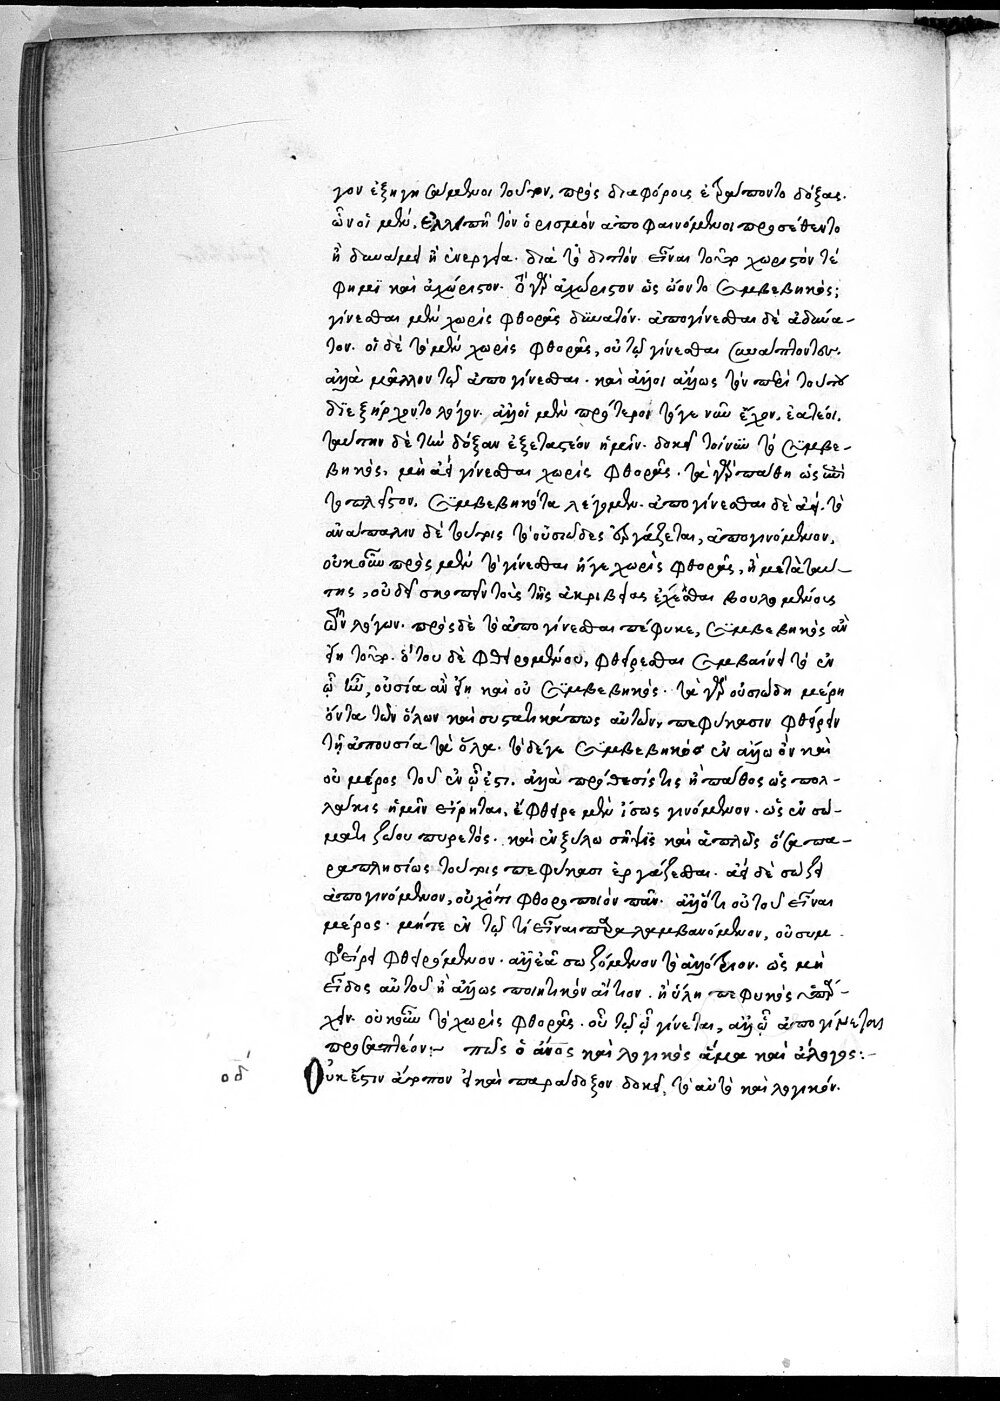 γον ἐξηγησάμενοι τοῦτον, πρὸς διαφόροις ἐτράποντο δόξας.
ὧν οἱ μὲν, ἐλλιπῆ τὸν ὁρισμὸν ἀποφαινόμενοι προσέθεντο
ἢ δυνάμει ἢ ἐνεργεία. διὰ τὸ διττὸν εἶναι τοῦτο χωριστόν τέ
φημι καὶ ἀχώριστον. τὸ γὰρ ἀχώριστον ὡς ᾤοντο συμβεβηκός;
γίνεσθαι μὲν χωρὶς φθορᾶς δυνατόν. ἀπογίνεσθαι δὲ ἀδύνα-
τον. οἱ δὲ τὸ μὲν χωρὶς φθορᾶς, οὐ τῷ γίνεσθαι συνάπτοντες.
ἀλλὰ μᾶλλον τῷ ἀπογίνεσθαι. καὶ ἄλλοι ἄλλως τὸν περὶ τούτου
διεξήρχοντο λόγον. ἀλλ' οἱ μὲν πρότερον τό γε νῦν ἔχον, ἐατέοι.
ταύτην δὲ τὴν δόξαν ἐξεταστέον ἡμῖν. δοκεῖ τοίνυν τὸ συμβε-
βηκὸς, μὴ ἀεὶ γίνεσθαι χωρὶς φθορᾶς. τὰ γὰρ πάθη ὡς ἐπὶ
τὸ πλεῖστον, συμβεβηκότα λέγομεν. ἀπογίνεσθαι δὲ ἀεί. τὸ
ἀνάπαλιν δὲ τούτοις τὸ οὐσιῶδες ἐργάζεται, ἀπογινόμενον,
οὐκοῦν πρὸς μὲν τὸ γίνεσθαι ἤγε χωρὶς φθορᾶς, ἢ μετὰ ταύ-
της, οὐδὲ σκοπεῖν τοὺς τῆς ἀκριβείας ἔχεσθαι βουλομένους
τῶν λόγων. πρὸς δὲ τὸ ἀπογίνεσθαι πέφυκε, συμβεβηκὸς ἂν
εἴη τοῦτο. ὅτου δὲ φθειρομένου, φθείρεσθαι συμβαίνει τὸ ἐν
ᾧ ἦν, οὐσία ἂν εἴη καὶ οὐ συμβεβηκός. τὰ γὰρ οὐσιώδη μέρη
ὄντα τῶν ὅλων καὶ συστατικά πως αὐτῶν, πεφύκασιν φθείρειν
τῇ ἀπουσία τὰ ὅλα. τὸ δέ γε συμβεβηκὸς ἐν ἄλλω ὂν καὶ
οὐ μέρος τοῦ ἐν ᾧ ἐστι. ἀλλὰ πρόσθεσίς τις ἢ πάθος ὡς πολ-
λάκις ἡμῖν εἴρηται, ἔφθειρε μὲν ἴσως γινόμενον. ὡς ἐν σώ-
ματι ζώου πυρετός. καὶ ἐν ξύλω σῆψις καὶ ἁπλῶς ὅσα πα-
ραπλησίως τούτοις πεφύκασι ἐργάζεσθαι. ἀεὶ δὲ σώζει
ἀπογινόμενον, οὐχ ὅτι φθοροποιὸν πᾶν. ἀλλ' ὅτι οὔτου εἶναι
μέρος. μήτε ἐν τῷ τί εἶναι παραλαμβανόμενον, οὐ συμ-
φθείρει φθειρόμενον. ἀλλ' ἐᾶ σωζόμενον τὸ ἀλλότριον. ὡς μὴ
εἶδος αὐτοῦ ἢ ἄλλως ποιητικὸν αἴτιον. ἢ ὕλη πεφυκὸς ὑπάρ-
χειν. οὐκοῦν τὸ χωρὶς φθορᾶς. οὐ τῷ ᾧ γίνεται, ἀλλ' ᾧ ἀπογίνεται
προσαπτέον:~ πῶς ὁ ἄνος καὶ λογικὸς ἅμα καὶ ἄλογος:-
οδ Οὐκ ἔστιν ἄτοπον εἰ καὶ παράδοξον δοκεῖ, τὸ αὐτὸ καὶ λογικόν.